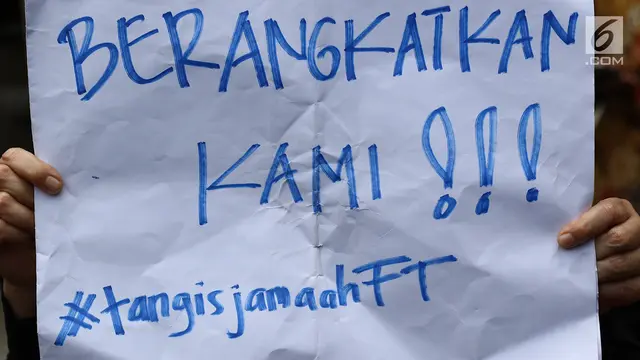 BERANGKATKAN
KAMI !!!
#tangisjamaahFT
6
.COM